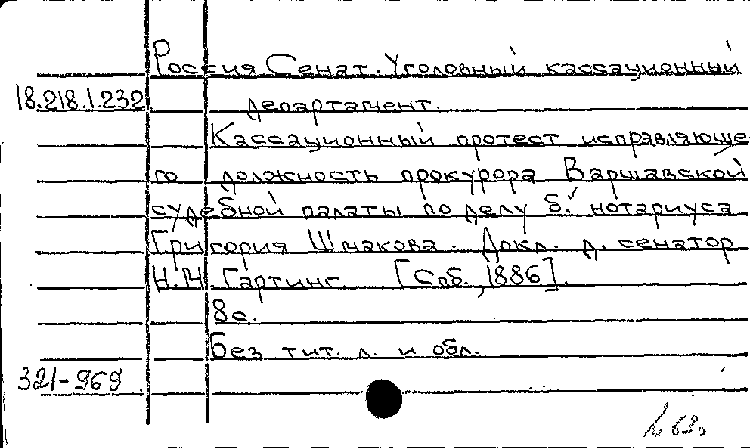 Россия Сенат. Уголовный кассационный
18.218.1.232
департамент.
Кассационный протест исправляюще
го должность прокурора Варшавской
судебной палаты по делу б. нотариуса
Григория Шмакова. Докл. д. сенатор
Н.Н. Гартинг. [Спб., 1886].
8с.
Без тит. л. и обл.
321-969